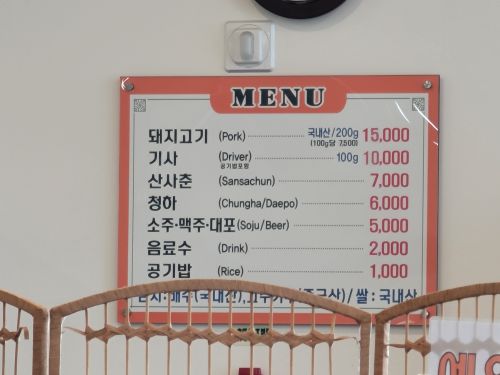 MENU
돼지고기 (Pork) 국내산/200g 15,000
(100g당 7,500)
기사 (Driver) 100g 10,000
공기밥포함
산사춘 (Sansachun) 7,000
청하 (Chungha/Daepo) 6,000
소주·맥주·대포 (Soju/Beer) 5,000
음료수 (Drink) 2,000
공기밥 (Rice) 1,000
배추(국내산), 고추가루(중국산) / 쌀 : 국내산